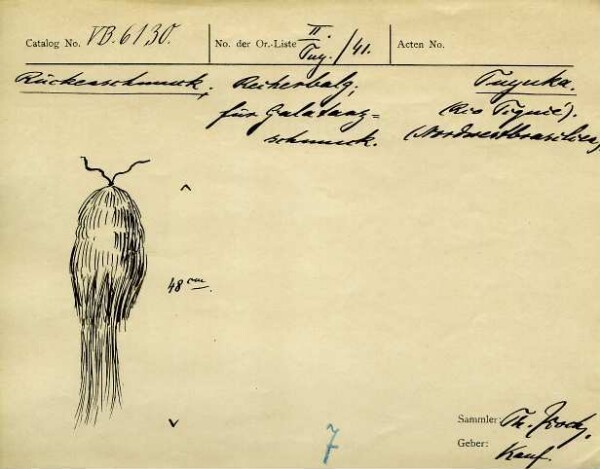 Catalog No. VB.6130.
No. der Or.-Liste II. Tuy./41.
Acten No.
Rückenschmuck; Reiherbalg; Tuyuka.
für Galatanz= (Rio Tiquié).
schmuck. (Nordwestbrasilien)
48 cm.
7
Sammler: Th. Koch.
Geber: Kauf.